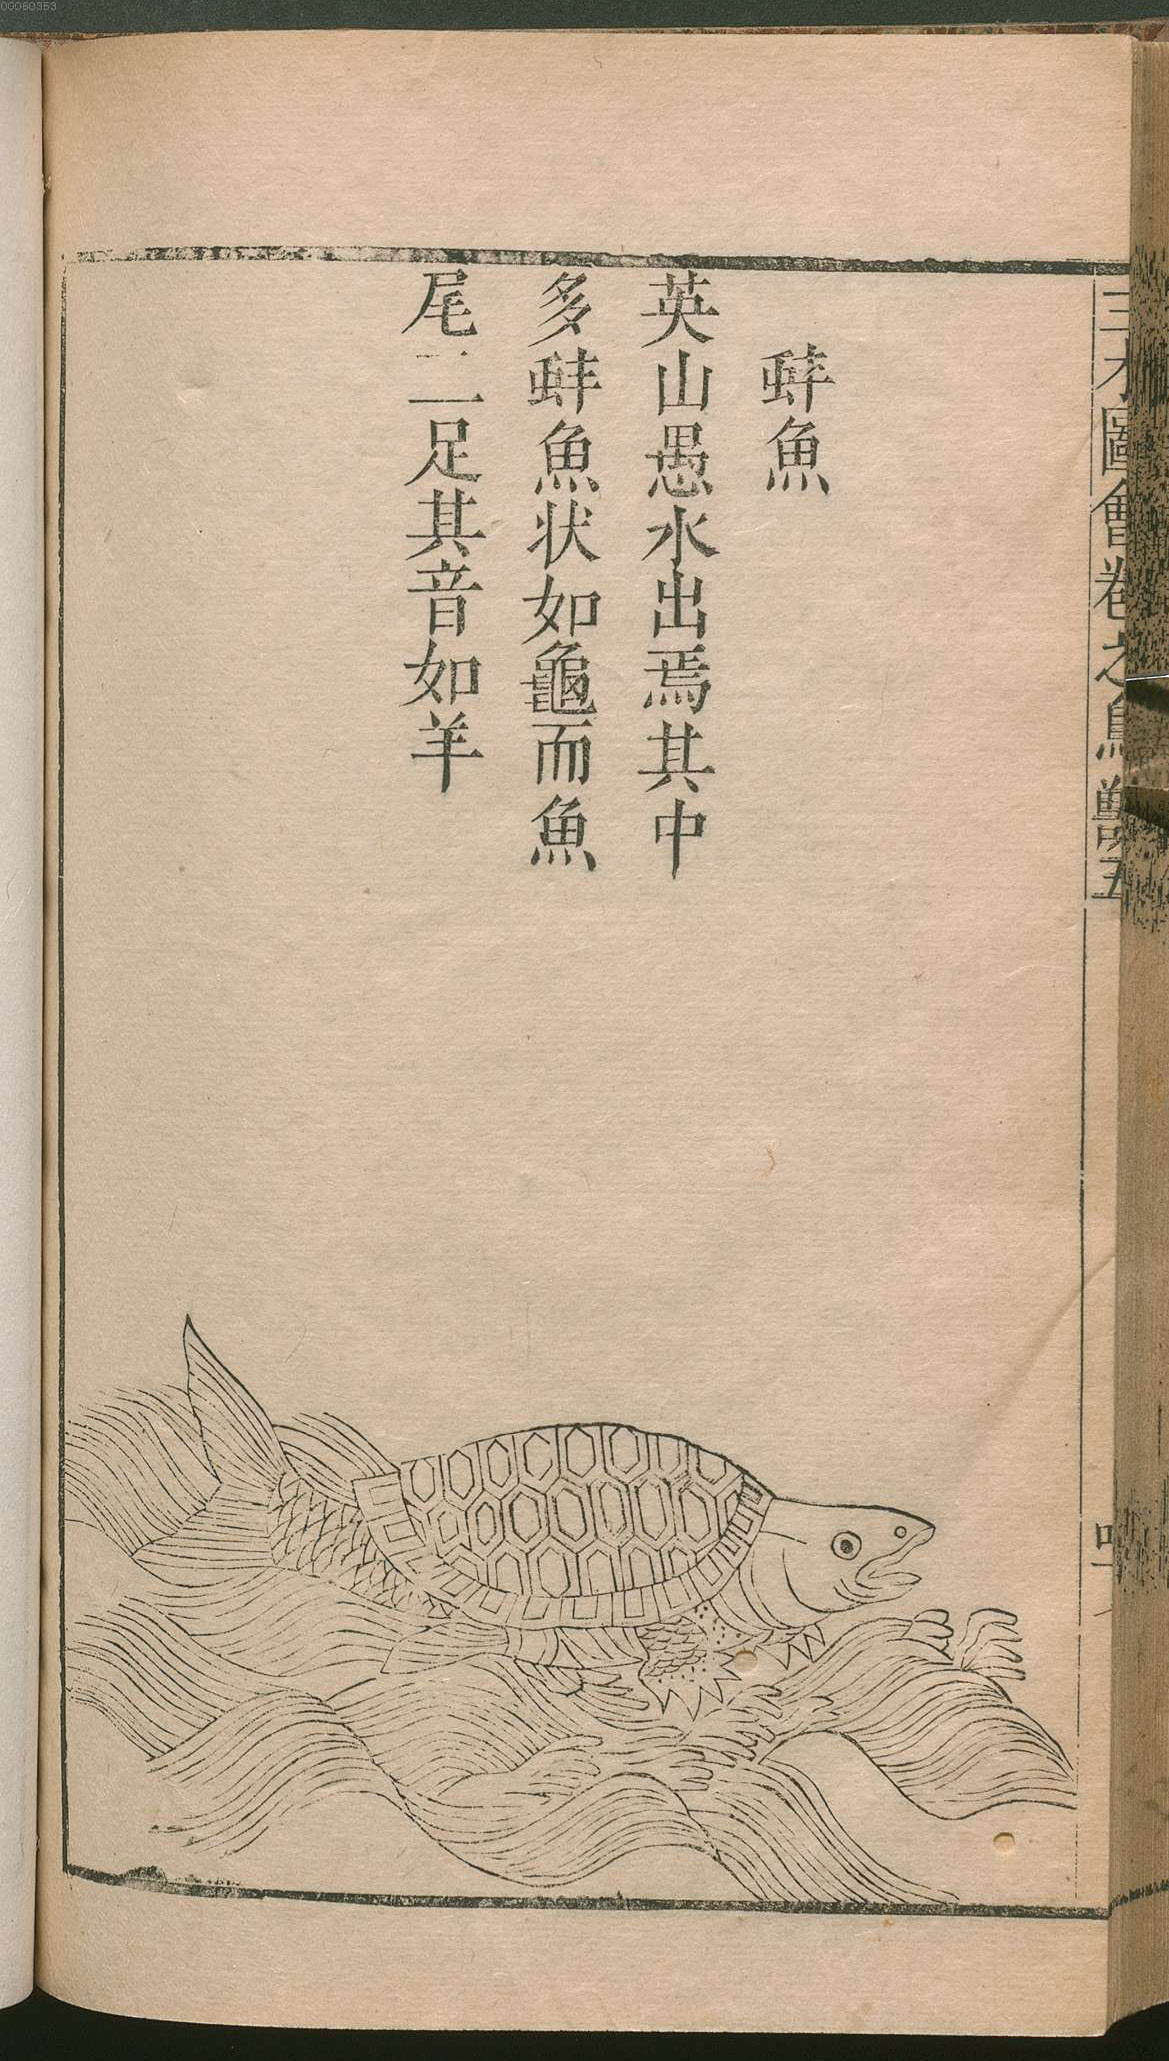 三才圖會卷之鳥獸五
䖫魚
英山愚水出焉其中
多䖫魚状如龜而魚
尾二足其音如羊
00060353